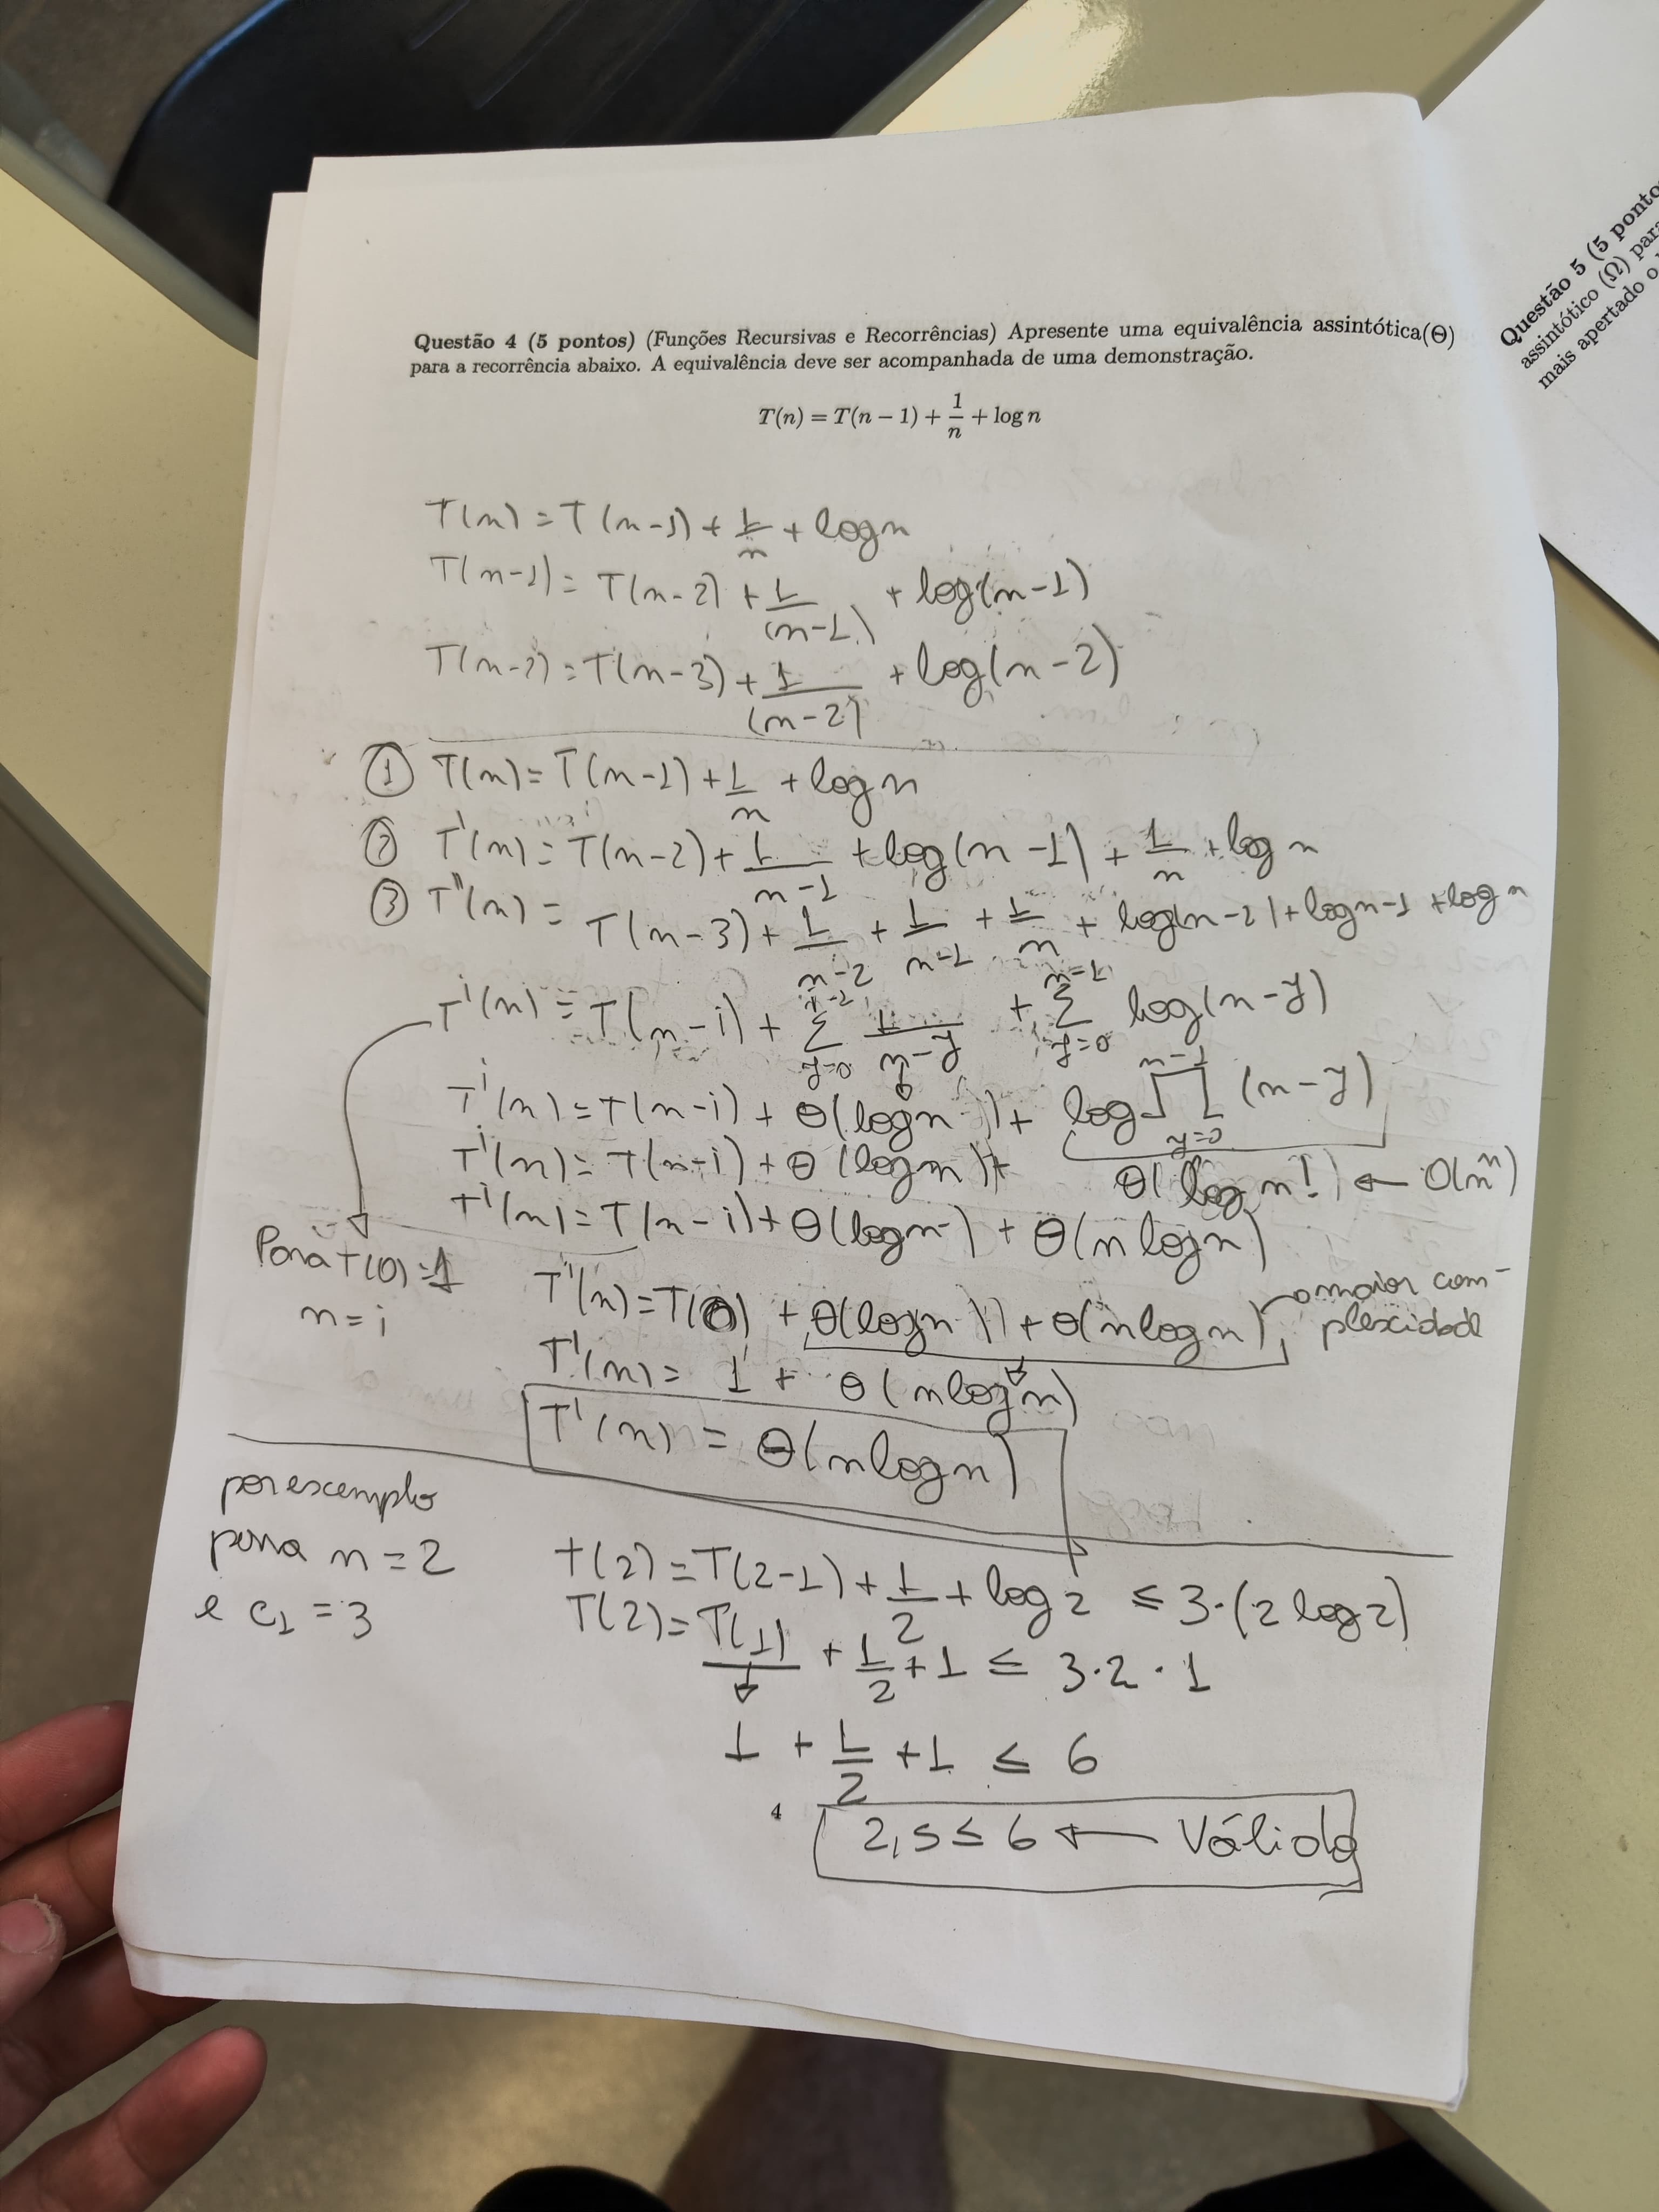 Questão 4 (5 pontos) (Funções Recursivas e Recorrências) Apresente uma equivalência assintótica(Θ)
para a recorrência abaixo. A equivalência deve ser acompanhada de uma demonstração.
T(n) = T(n − 1) + 1/n + log n
T(n) = T(n-1) + 1/n + logn
T(n-1) = T(n-2) + 1/(n-1) + log(n-1)
T(n-2) = T(n-3) + 1/(n-2) + log(n-2)
① T(n) = T(n-1) + 1/n + logn
② T'(n) = T(n-2) + 1/n-1 + log(n-1) + 1/n + logn
③ T''(n) = T(n-3) + 1/n-2 + 1/n-1 + 1/n + log(n-2) + logn-1 + logn
Tⁱ(n) = T(n-i) + Σ y=0 1/n-y + Σ y=0 n=1 log(n-y)
Tⁱ(n) = T(n-i) + Θ(logn) + log ∏ y=0 n-1 (n-y)
Tⁱ(n) = T(n-i) + Θ(logn) + Θ(log n!) ← O(nⁿ)
Tⁱ(n) = T(n-i) + Θ(logn) + Θ(nlogn)
Para T(0) = 1
n = i
T'(n) = T(0) + Θ(logn) + Θ(nlogn) → maior com-
plexidade
T'(n) = 1 + Θ(nlogn)
T'(n) = Θ(nlogn)
por exemplo
para n = 2
e c₁ = 3
T(2) = T(2-1) + 1/2 + log2 ≤ 3·(2log2)
T(2) = T(1) + 1/2 + 1 ≤ 3·2·1
1 + 1/2 + 1 ≤ 6
2,5 ≤ 6 ← Válido
4
Questão 5 (5 ponto
assintótico (Ω) para
mais apertado o